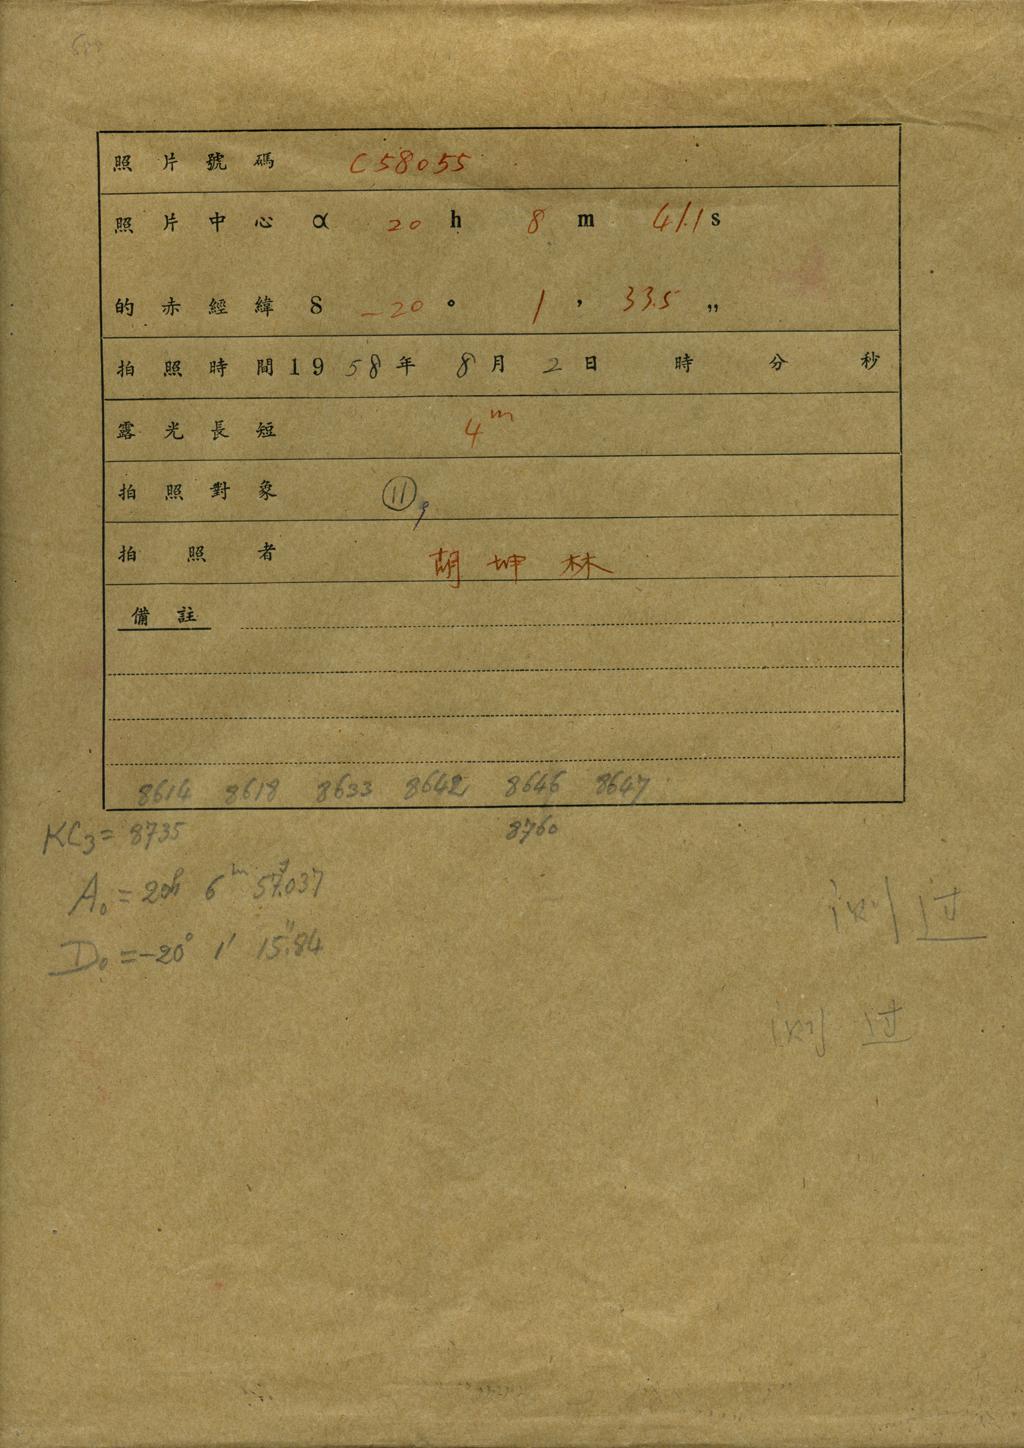 照片號碼 C58055
照片中心 α 20 h 8 m 41.1 s
的赤經緯 δ -20 ° 1 ' 33.5 "
拍照時間 1958年 8月 2日 時 分 秒
露光長短 4m
拍照對象 ⑪
拍照者 胡坤林
備註
8614 8618 8633 8642 8646 8647
KC3= 8735 8760
A₀= 20h 6m 57.037
D₀=-20° 1' 15".84
测过
测过